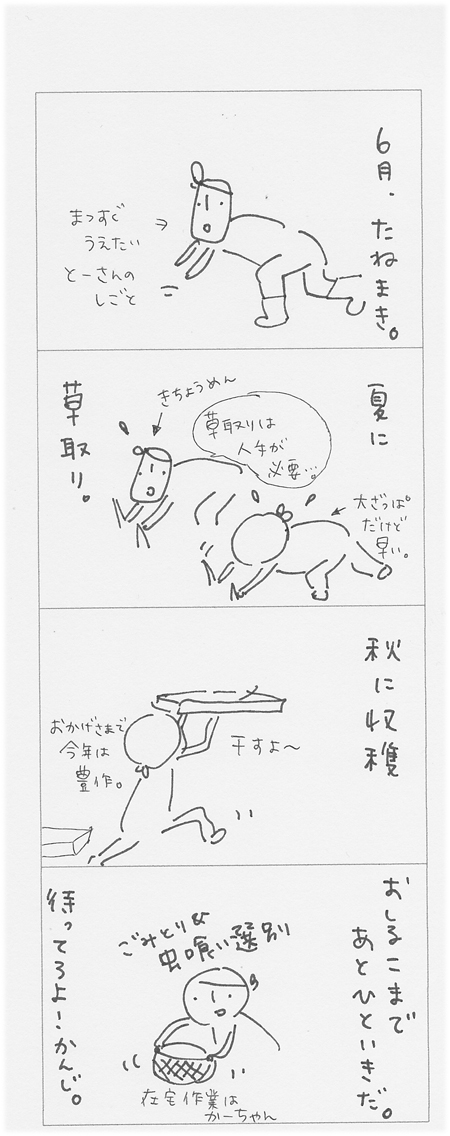 6月、たねまき。
まっすぐ
うえたい
とーさんの
しごと
夏に
草取り。
きちょうめん
草取りは
人手が
必要…。
大ざっぱ
だけど
早い。
秋に収穫
干すよ〜
おかげさまで
今年は
豊作。
おしるこまで
あとひといきだ。
ごみとり&
虫喰い選別
在宅作業は
かーちゃん
待ってろよ！かんじ。